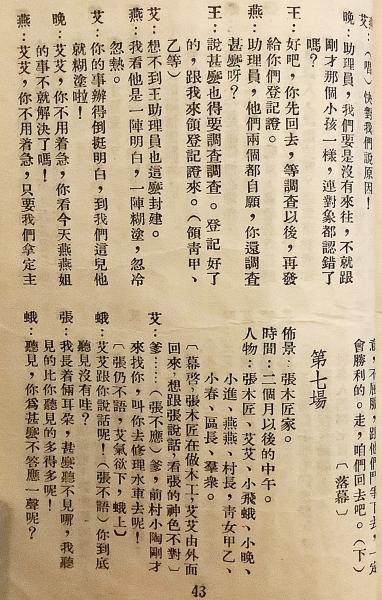 艾：（唱）快對我們說原因！
晚：助理員，我們要是沒有來往，不就跟
剛才那個小孩一樣，連對象都認錯了
嗎？
王：好吧，你先回去，等調查以後，再發
給你們登記證。
燕：助理員，他們兩個都自願，你還調查
甚麼呀？
王：說甚麼也得要調查調查。登記好了
的，跟我來領登記證來。（領青甲、
乙等）
艾：想不到王助理員也這麼封建。
燕：我看他是一陣明白，一陣糊塗，忽冷
忽熱。
艾：你的事辦得倒挺明白，到我們這兒他
就糊塗啦！
晚：艾艾，你不用着急，你看今天燕燕姐
的事不就解決了嗎！
燕：艾艾，你不用着急，只要我們拿定主
意，不屈服，跟他們鬥爭下去，一定
會勝利的。走，咱們回去吧。（下）
〔落幕〕
第七場
佈景：張木匠家。
時間：二個月以後的中午。
人物：張木匠、艾艾、小飛蛾、小晚、
小進、燕燕、村長，青女甲乙、
小春、區長、羣衆。
〔幕啓，張木匠在做木工，艾艾由外面
回來，想跟張說話，看張的神色不對〕
艾：爹……（張不應）爹，前村小陶剛才
來找你，叫你去修理水車去呢！
〔張仍不語，艾氣欲下，蛾上〕
蛾：艾艾跟你說話呢！（張不語）你到底
聽見沒有哇？
張：我長着倆耳朵，甚麼聽不見哪，我聽
見的比你聽見的多得多呢！
蛾：聽見，你爲甚麼不答應一聲呢？
43